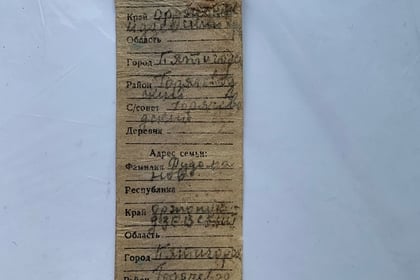 Край Орджони
кидзевский
Область
Город Пятигорс
Район Горячевод
ский
С/совет Горячево
дский
Деревня
Адрес семьи:
Фамилия
нов
Республика
Край Орджони
дзевский
Область
Город Пятигорс
Район Горячево